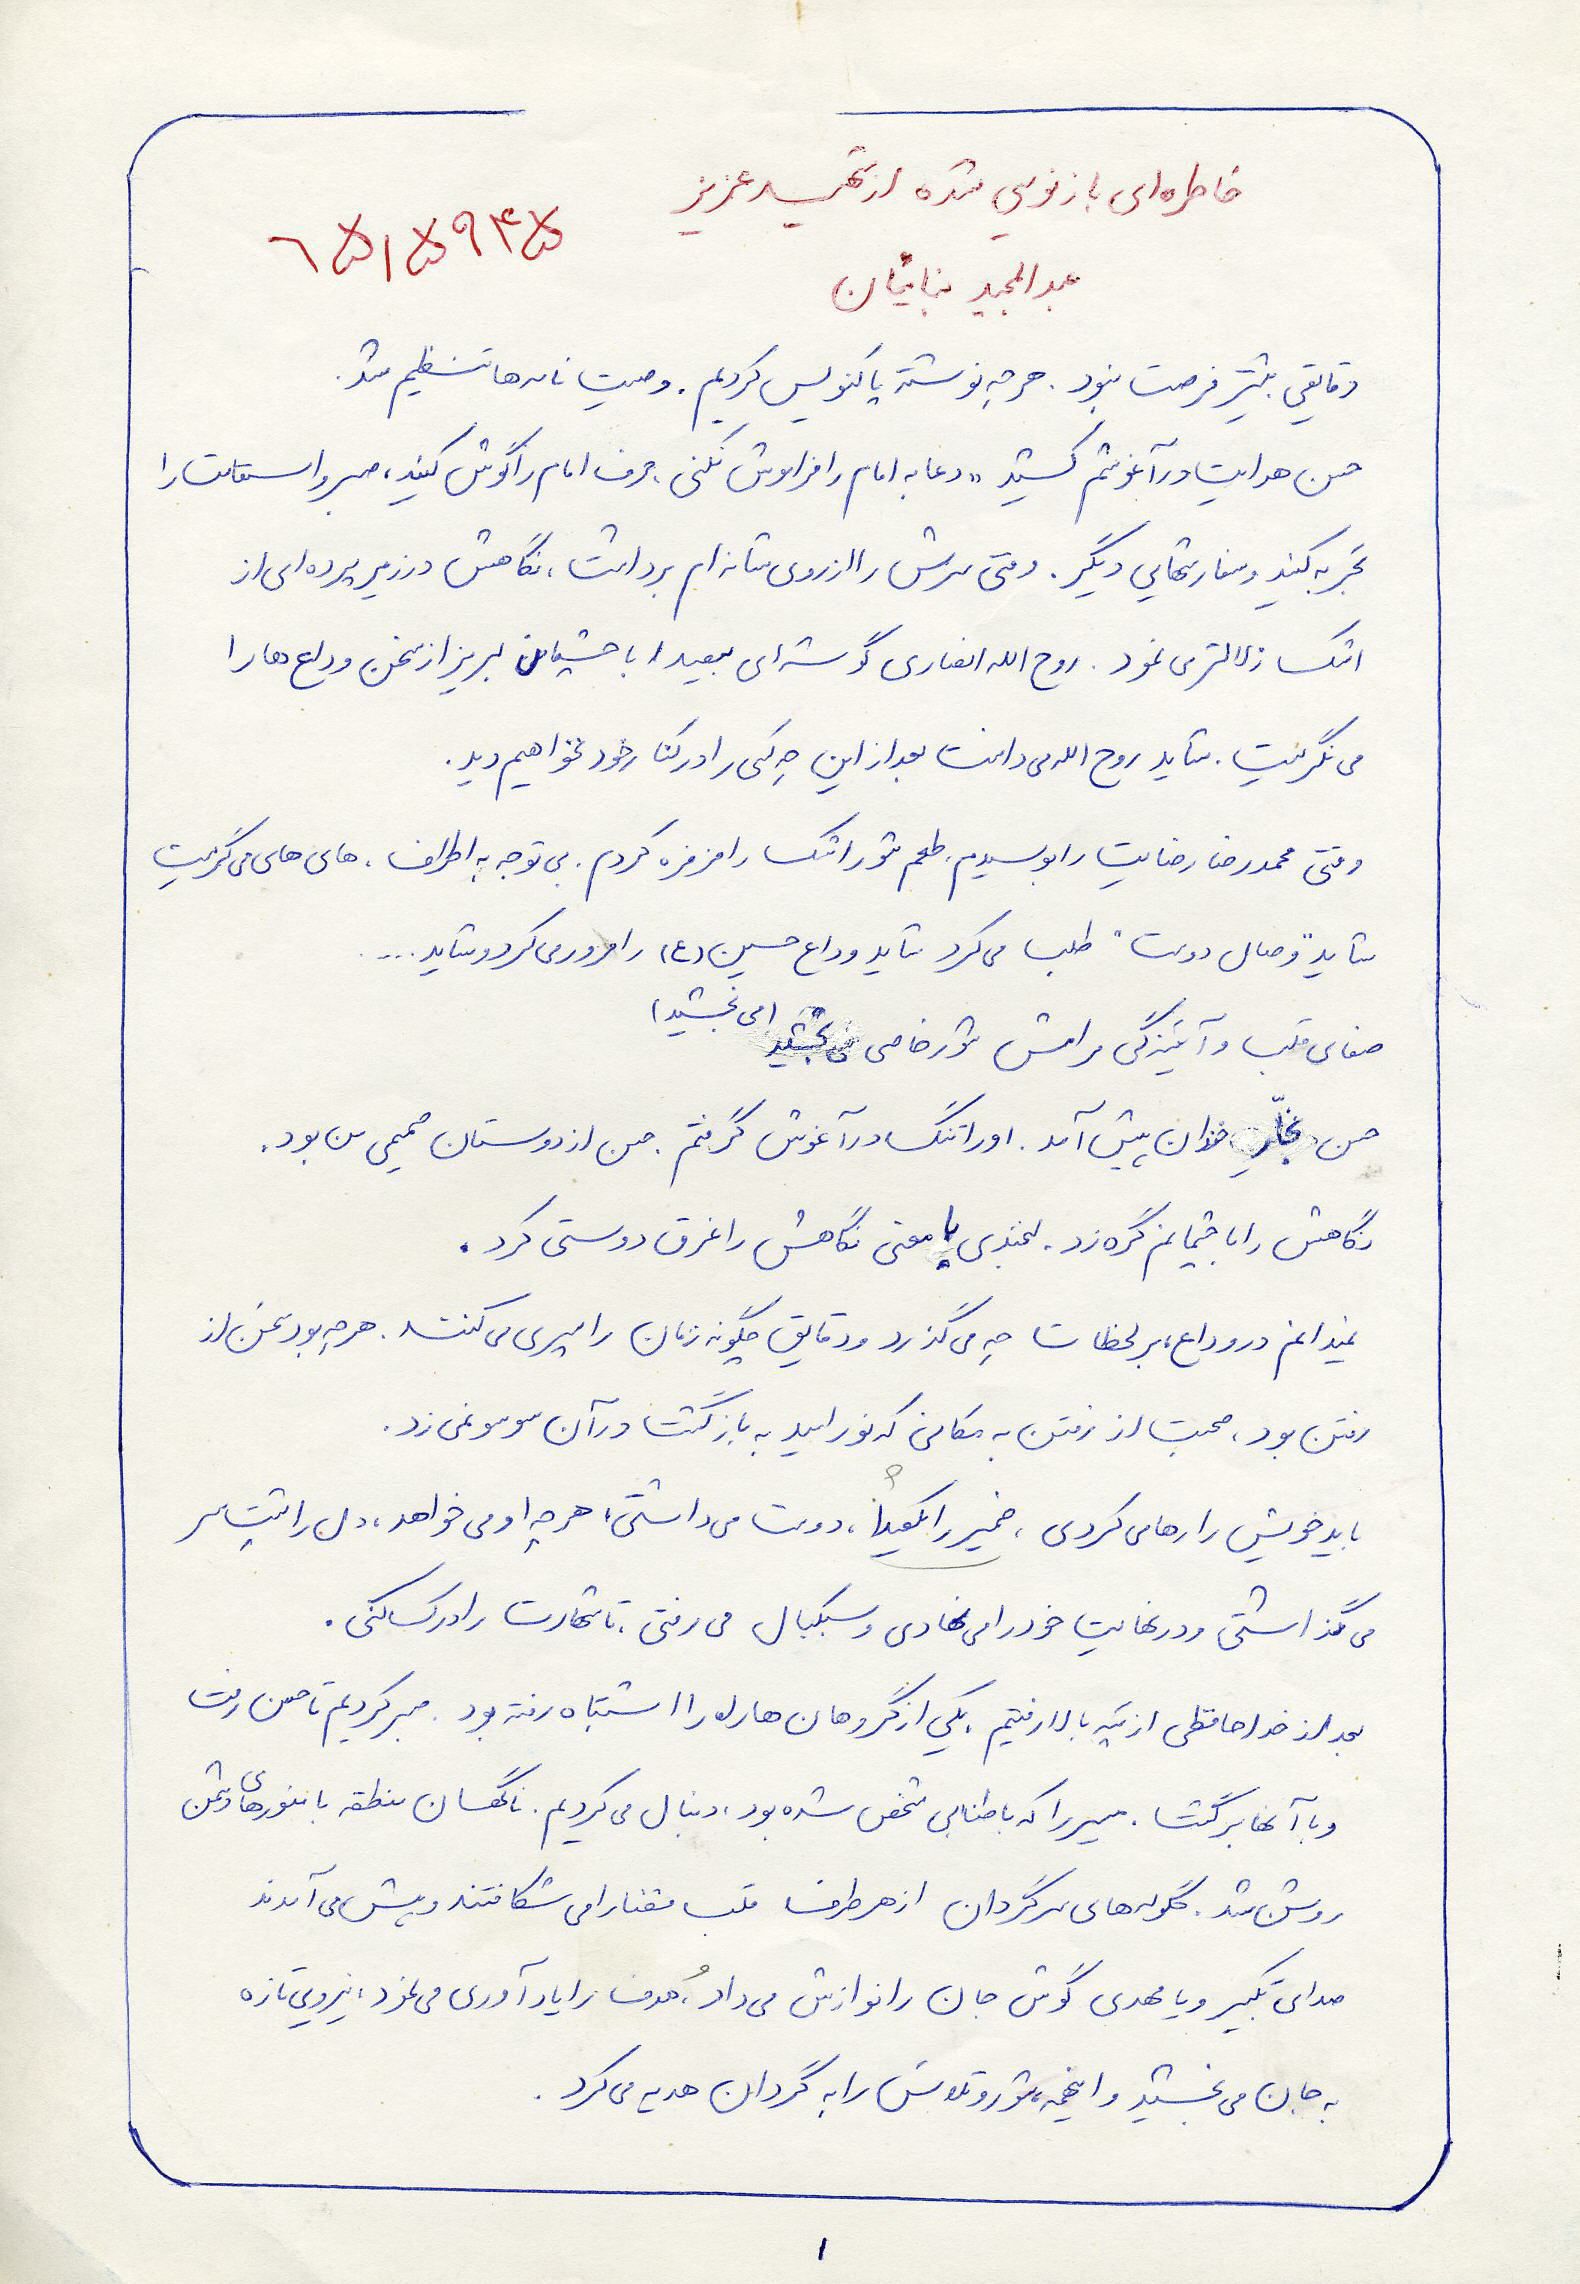 خاطره‌ای بازنویسی شده از شهید عزیز
۶۵۱۵۹۴۵
عبدالمجید بنائیان
دقایقی بیشتر فرصت نبود. هر چه نوشته پاکنویس کردیم. وصیت نامه‌ها تنظیم شد.
حسن هدایت در آغوشم کشید «دعا به امام را فراموش نکنی، حرف امام را گوش کنید، صبر و استقامت را
تجربه کنید و سفارشهایی دیگر. وقتی سرش را از روی شانه‌ام برداشت، نگاهش در زیر پرده‌ای از
اشک زلالتر می نمود. روح الله انصاری گوشه‌ای سعید را با چشمان لبریز از سخن وداع ها را
می نگریست. شاید روح الله می دانست بعد از این چه کسی را در کنار خود نخواهیم دید.
وقتی محمدرضا رضایت را بوسیدم، طعم شور اشک را مزمزه کردم. بی توجه به اطراف، های های می گریست
شاید "وصال دوست" طلب می کرد شاید وداع حسین (ع) را مرور می کرد و شاید ....
صفای قلب و آئینگی مرامش شور خاصی می بخشید (می بخشید)
حسن خندان پیش آمد. او را تنگ در آغوش گرفتم. حسن از دوستان صمیمی من بود.
نگاهش را با چشمانم گره زد. لبخندی با معنی نگاهش را غرق دوستی کرد.
نمیدانم در وداع، بر لحظات چه می گذرد و دقایق چگونه زمان را سپری می کنند. هر چه بود سخن از
رفتن بود، صحبت از رفتن به مکانی که نور امید به بازگشت در آن سوسو نمی زد.
باید خویش را رها می کردی، ضمیر را ؟ دوست می داشتی، هر چه او می خواهد، دل را پشت سر
می گذاشتی و در نهایت خود را می نهادی و سبکبال می رفتی، تا شهادت را درک کنی.
بعد از خداحافظی از تپه بالا رفتیم، یکی از گروهان ها راه را اشتباه رفته بود. صبر کردیم تا حسن رفت
و با آنها برگشت. مسیر را که با طنابی مشخص شده بود، دنبال می کردیم. ناگهان منطقه با منورهای دشمن
روشن شد. گلوله های سرگردان از هر طرف قلب فضا را می شکافتند و پیش می آمدند
صدای تکبیر و یا مهدی گوش جان را نوازش می داد و هدف را یادآوری می نمود، نیرویی تازه
به جان می بخشید و اینهمه، شور و تلاش را به گردان هدیه می کرد.
۱